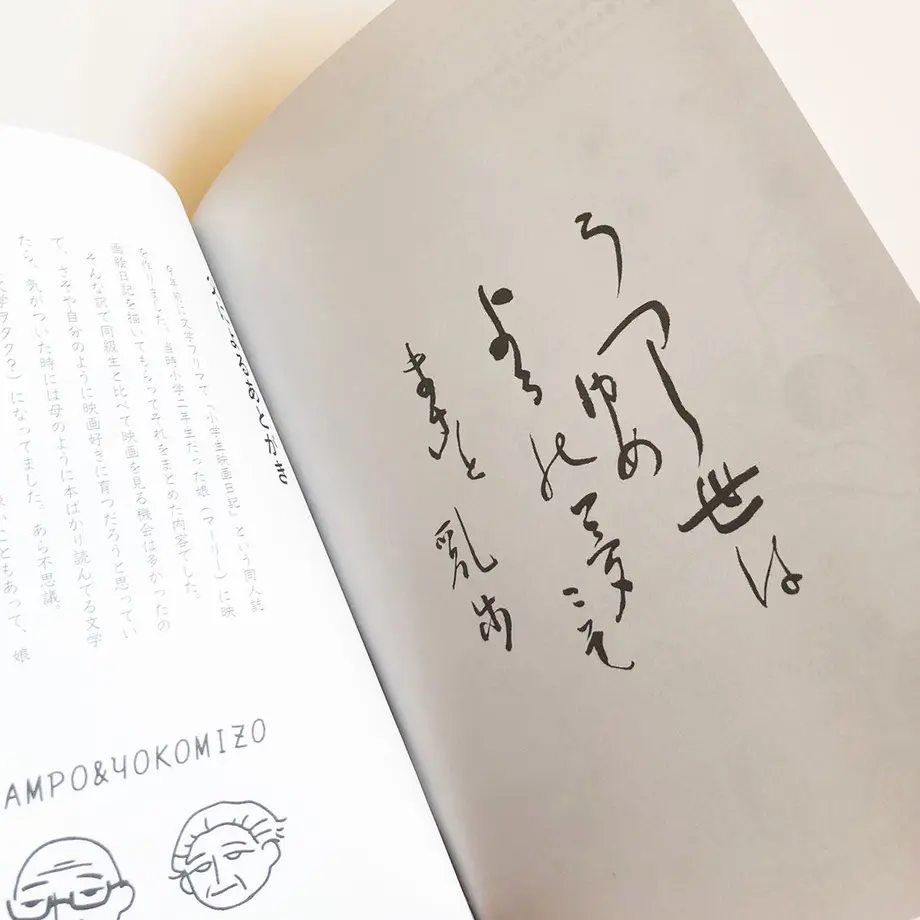 うつし世は
ゆめ
よるの夢こそ
まこと 乱歩
あとがき
9年前に文学フリマで『小学生映画日記』という同人誌
を作りました。当時小学二年生だった娘(アーリー)に映
画絵日記を描いてもらってそれをまとめた内容でした。
そんな訳で同級生と比べて映画を見る機会は多かったの
で、さぞや自分のように映画好きに育つだろうと思ってい
たら、気がついた時には母のように本ばかり読んでる文学
(文学ヲタク?)になってました。あら不思議。
こともあって、娘
AMPO&YOKOMIZO